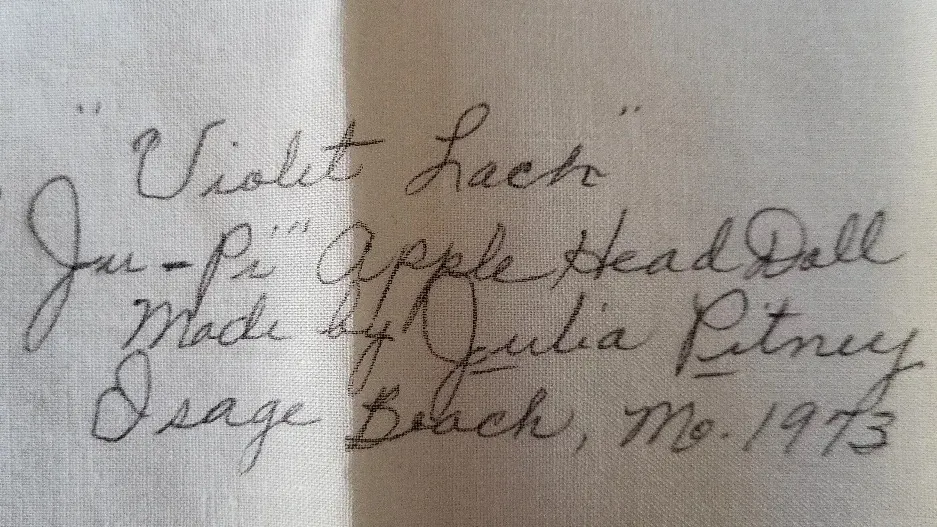 "Violet Lach"
"Ju-Pi" "Apple Head Doll
Made by Julia Pitney
Osage Beach, Mo. 1973